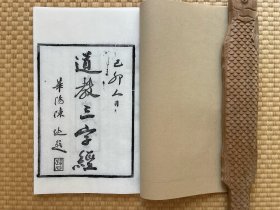 己卯人日
道教三字經
華陽陳
題